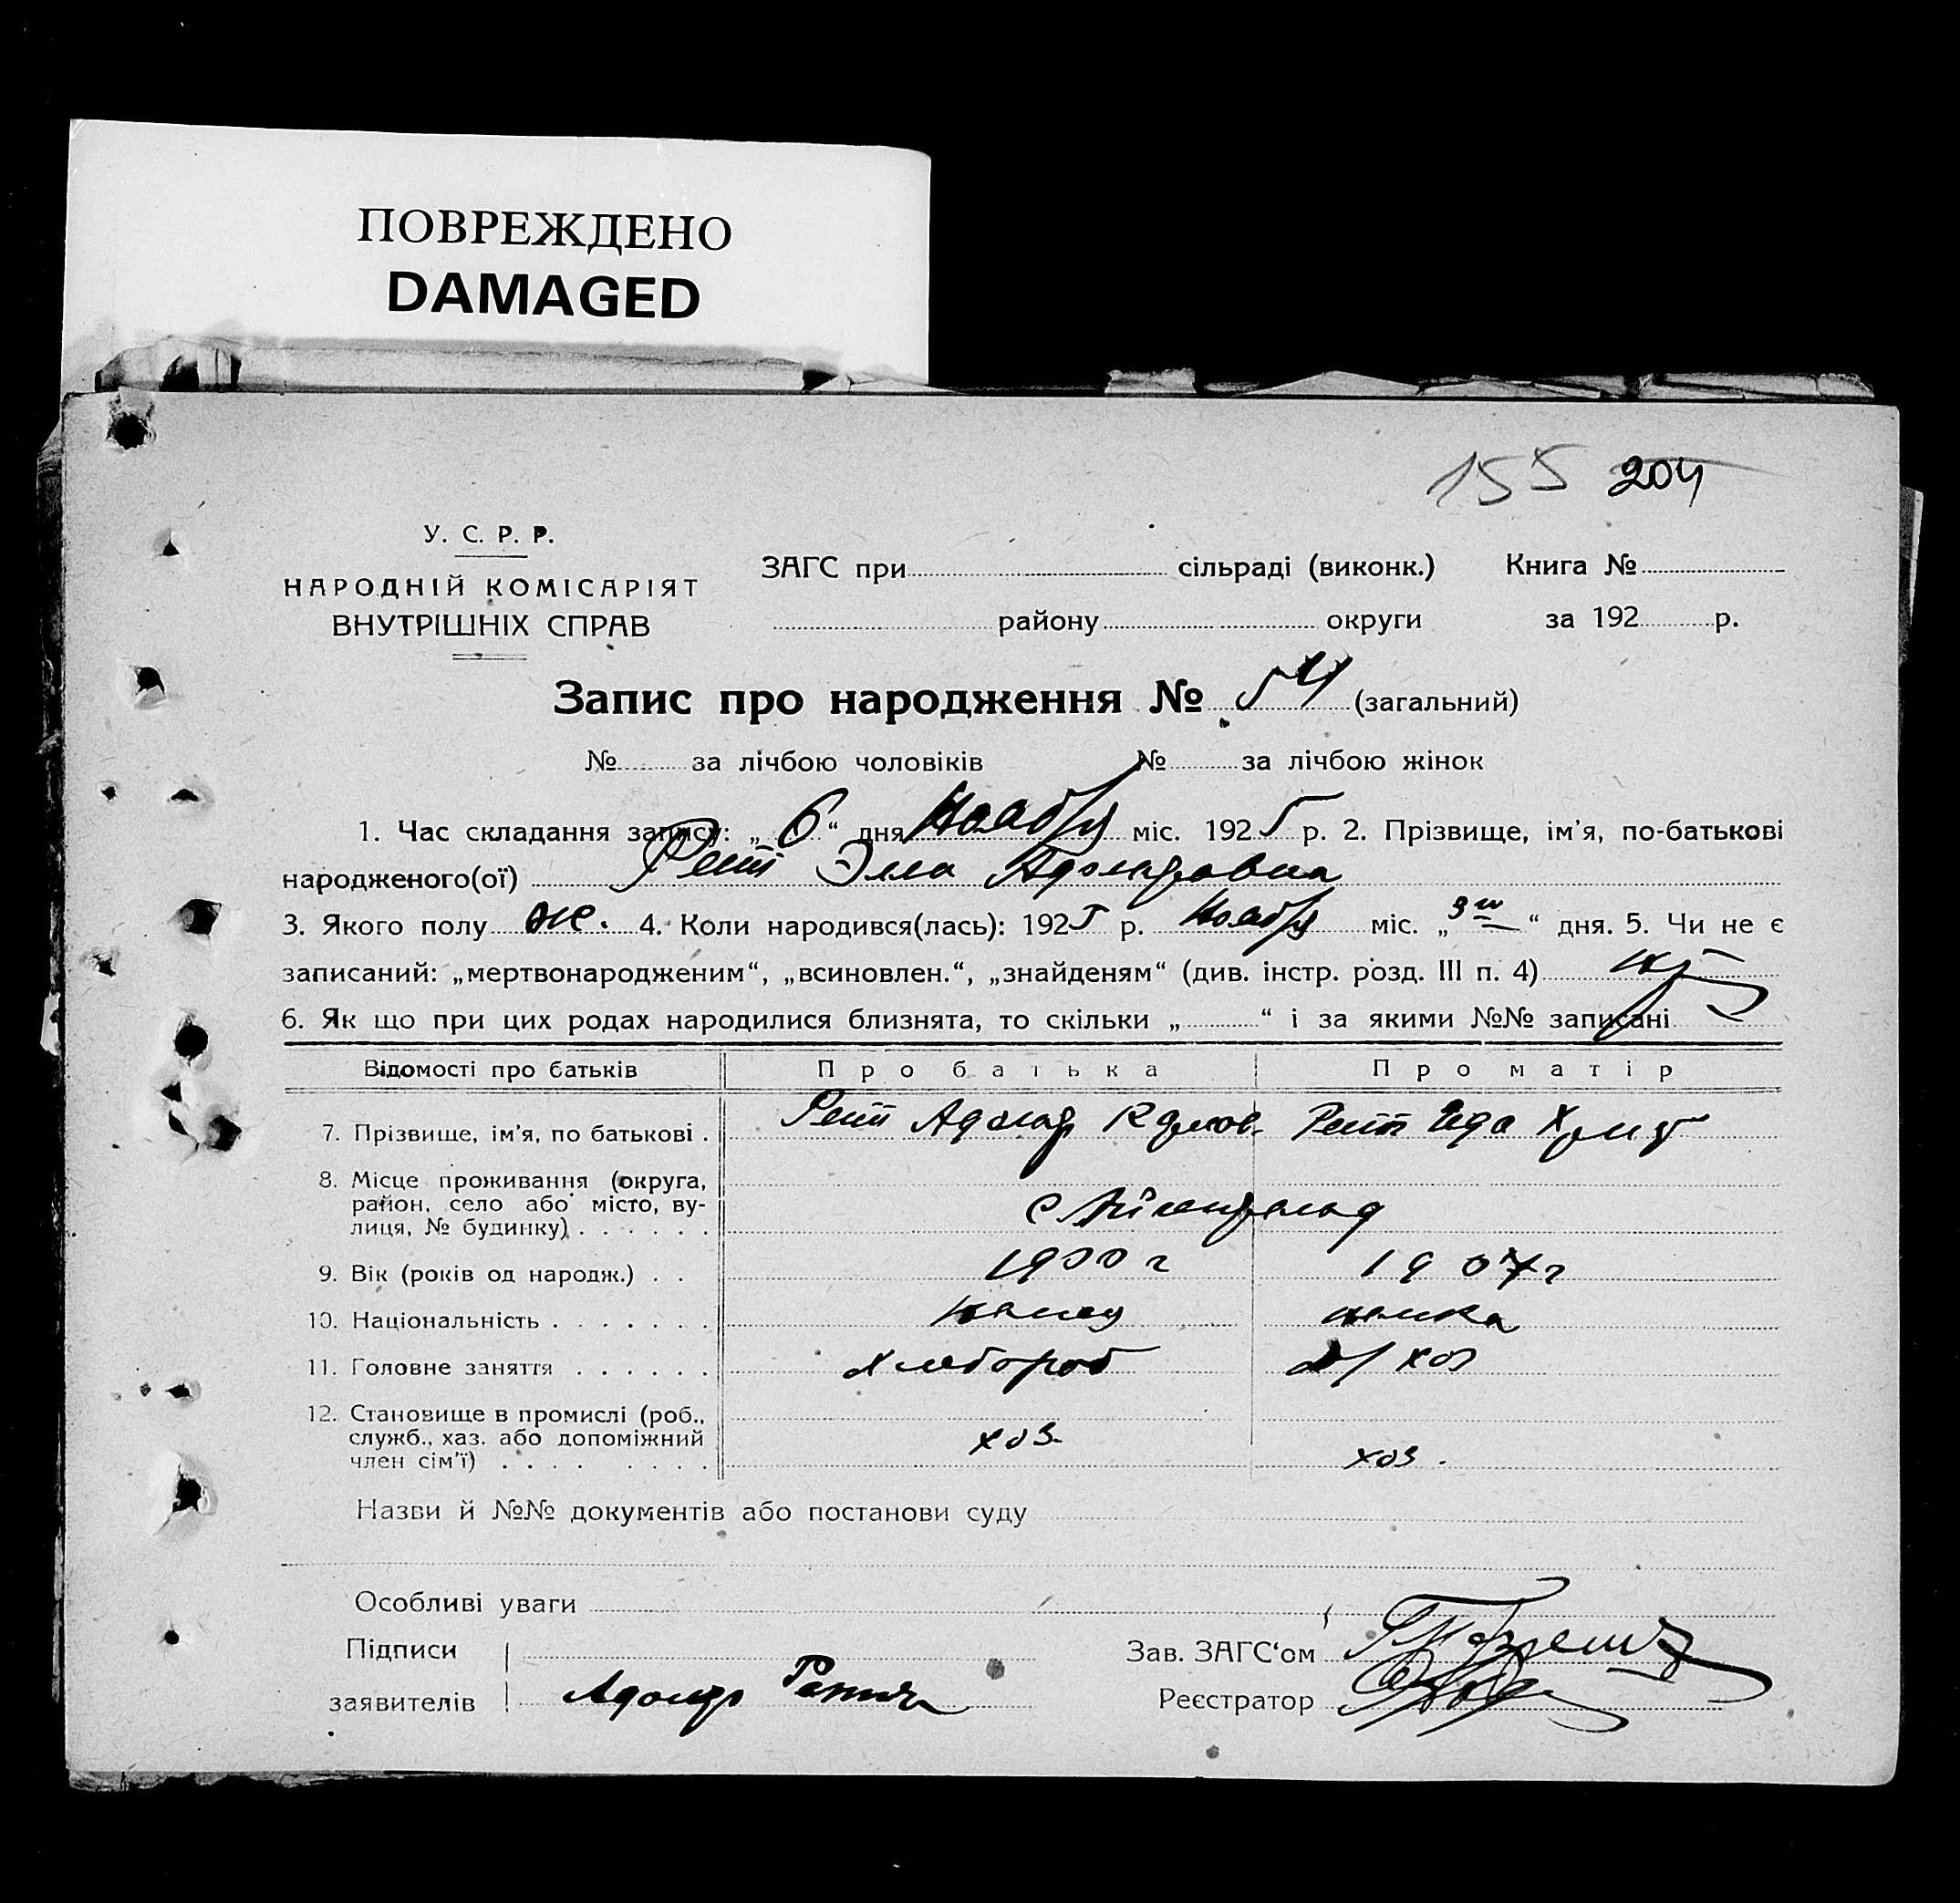 ПОВРЕЖДЕНО
DAMAGED
155 204
У. С. Р. Р.
НАРОДНІЙ КОМІСАРІЯТ
ВНУТРІШНІХ СПРАВ
ЗАГС при сільраді (виконк.) Книга №
району округи за 192 р.
Запис про народження № 54 (загальний)
№ за лічбою чоловіків № за лічбою жінок
1. Час складання запису: „ 6 “ дня Ноября міс. 1925 р. 2. Прізвище, ім’я, по-батькові
народженого(ої) Рент Элла Адольфовна
3. Якого полу же. 4. Коли народився(лась): 1925 р. Ноября міс. „ 3го “ дня. 5. Чи не є
записаний: „мертвонародженим“, „всиновлен.“, „знайденям“ (див. інстр. розд. III п. 4)
6. Як що при цих родах народилися близнята, то скільки „ “ і за якими №№ записані
Відомості про батьків Про батька Про матір
7. Прізвище, ім’я, по батькові . Рент Адольф Рент Ида
8. Місце проживання (округа,
район, село або місто, ву-
лиця, № будинку) . . . . . . с
9. Вік (років од народж.) . . 1900 г 1907 г
10. Національність . . . . . . . немец немка
11. Головне заняття . . . . . . хлебороб д/хоз
12. Становище в промислі (роб.,
служб., хаз. або допоміжний
член сім’ї) . . . . . . . . хоз. хоз.
Назви й №№ документів або постанови суду
Особливі уваги
Підписи
заявителів Адольф
Зав. ЗАГС‘ом
Реєстратор